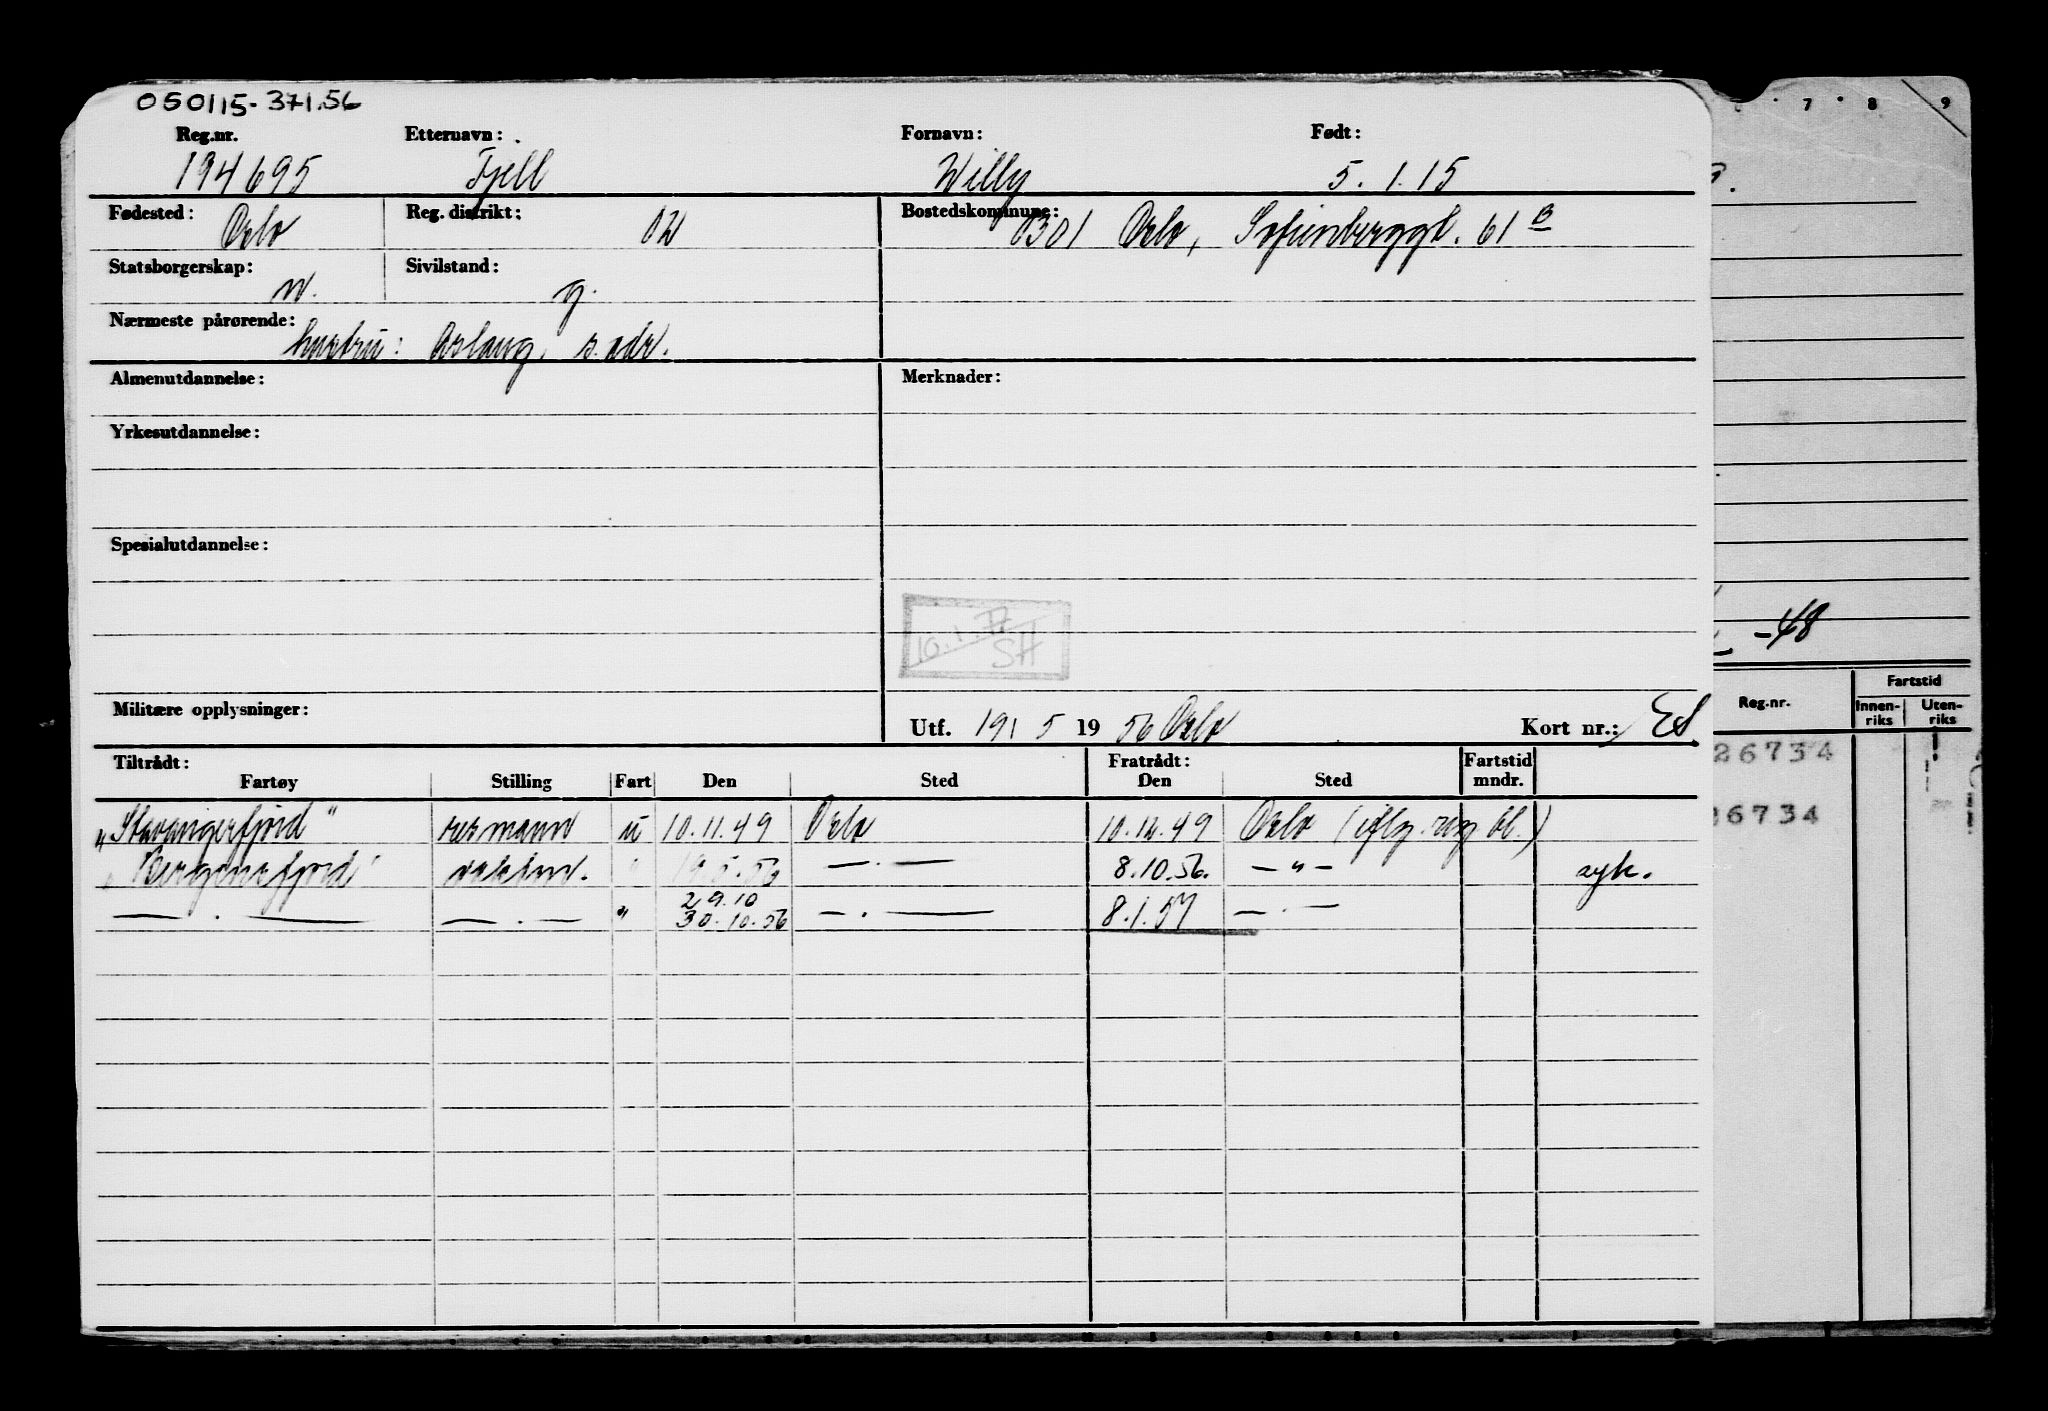 050115-371.56
Reg.nr. Etternavn: Fornavn: Født:
194695 Fjell Willy 5.1.15
Fødested: Reg. distrikt: Bostedskommune:
Oslo 02 0301 Oslo, Sofienberggt. 61 B
Statsborgerskap: Sivilstand:
n. g.
Nærmeste pårørende:
hustru: Aslaug, s. adr.
Almenutdannelse: Merknader:
Yrkesutdannelse:
Spesialutdannelse:
10.1. SH
Militære opplysninger:
Utf. 19/5 1956 Oslo Kort nr.:
Tiltrådt: Fratrådt: Fartstid
Fartøy Stilling Fart Den Sted Den Sted mndr.
"Stavangerfjord" u 10.11.49 Oslo 10.12.49 Oslo
"Bergensfjord" " 19.5.56 —.— 8.10.56. —"— syk.
29.10
—.— —.— " 30.10.56 —.— 8.1.57 —.—
7 8 9
-48
Reg.nr. Fartstid
Innen- Uten-
riks riks
26734
6734